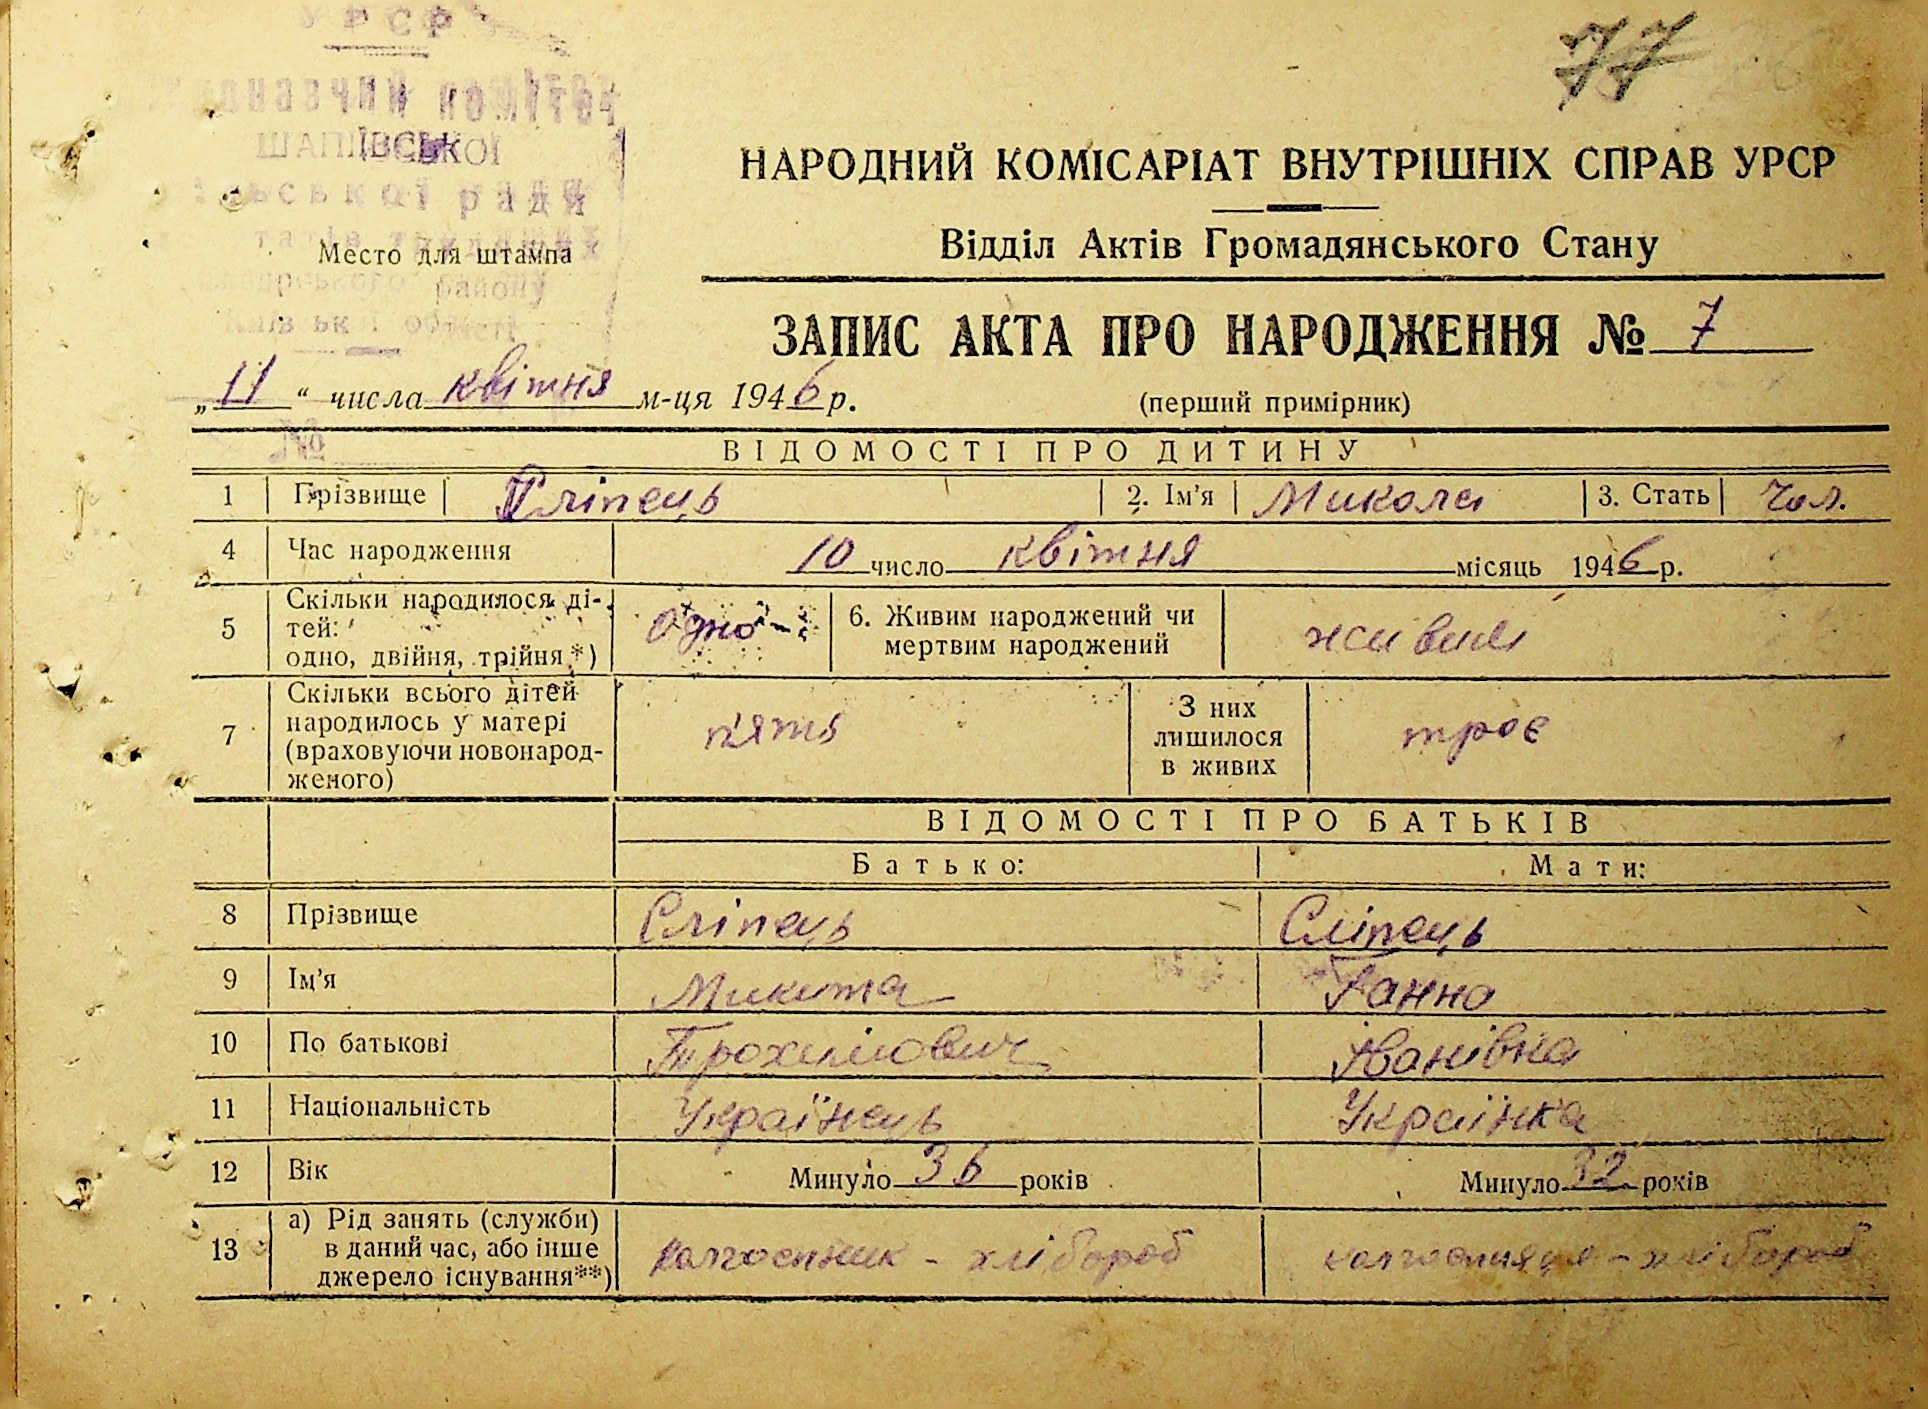 УРСР
77
ШАПІЇВСЬКОЇ
ради
району
Место для штампа
НАРОДНИЙ КОМІСАРІАТ ВНУТРІШНІХ СПРАВ УРСР
Відділ Актів Громадянського Стану
ЗАПИС АКТА ПРО НАРОДЖЕННЯ № 7
„11“ числа квітня м-ця 1946 р.
(перший примірник)
№
ВІДОМОСТІ ПРО ДИТИНУ
1 Прізвище Сліпець 2. Ім'я Микола 3. Стать Чол.
4 Час народження 10 число квітня місяць 1946 р.
5 Скільки народилося ді-
тей:
одно, двійня, трійня*) одно 6. Живим народжений чи
мертвим народжений живим
7 Скільки всього дітей
народилось у матері
(враховуючи новонарод-
женого) п'ять З них
лишилося
в живих троє
ВІДОМОСТІ ПРО БАТЬКІВ
Батько: Мати:
8 Прізвище Сліпець Сліпець
9 Ім'я Микита Ганна
10 По батькові Трохимович Іванівна
11 Національність Українець Українка
12 Вік Минуло 36 років Минуло 32 років
13 а) Рід занять (служби)
в даний час, або інше
джерело існування**) колгоспник - хлібороб колгоспниця - хлібороб